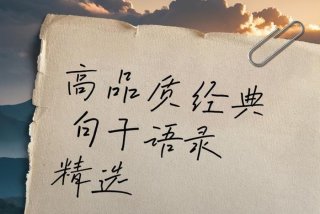 高品质经典
句干语录
精选